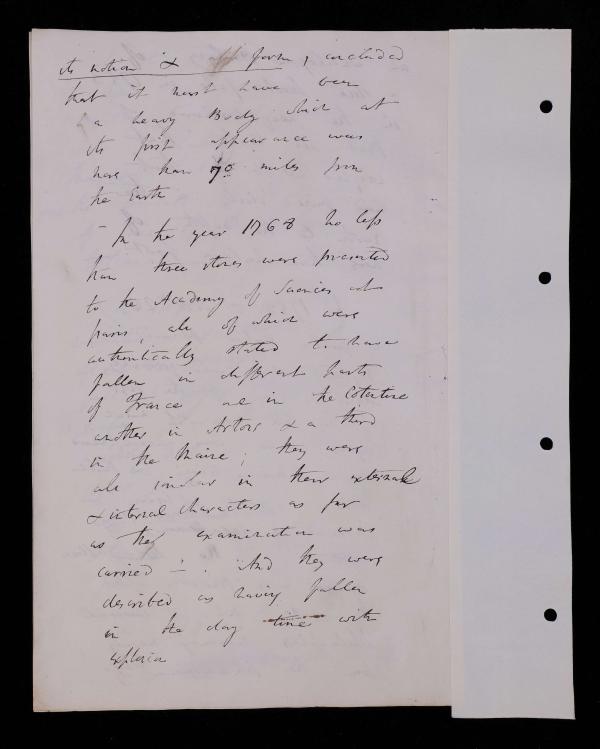 its motion & form, concluded
that it must have been
a heavy Body which at
its first appearance was
more than 70 miles from
the Earth
- In the year 1768 no less
than three stones were presented
to the Academy of Sciences at
paris, all of which were
authentically stated to have
fallen in different parts
of France one in the Cotentine
another in Artois & a third
in the Maine; they were
all similar in their external
& internal characters as far
as they examination was
carried -. And they were
described as having fallen
in the day time with
explosion